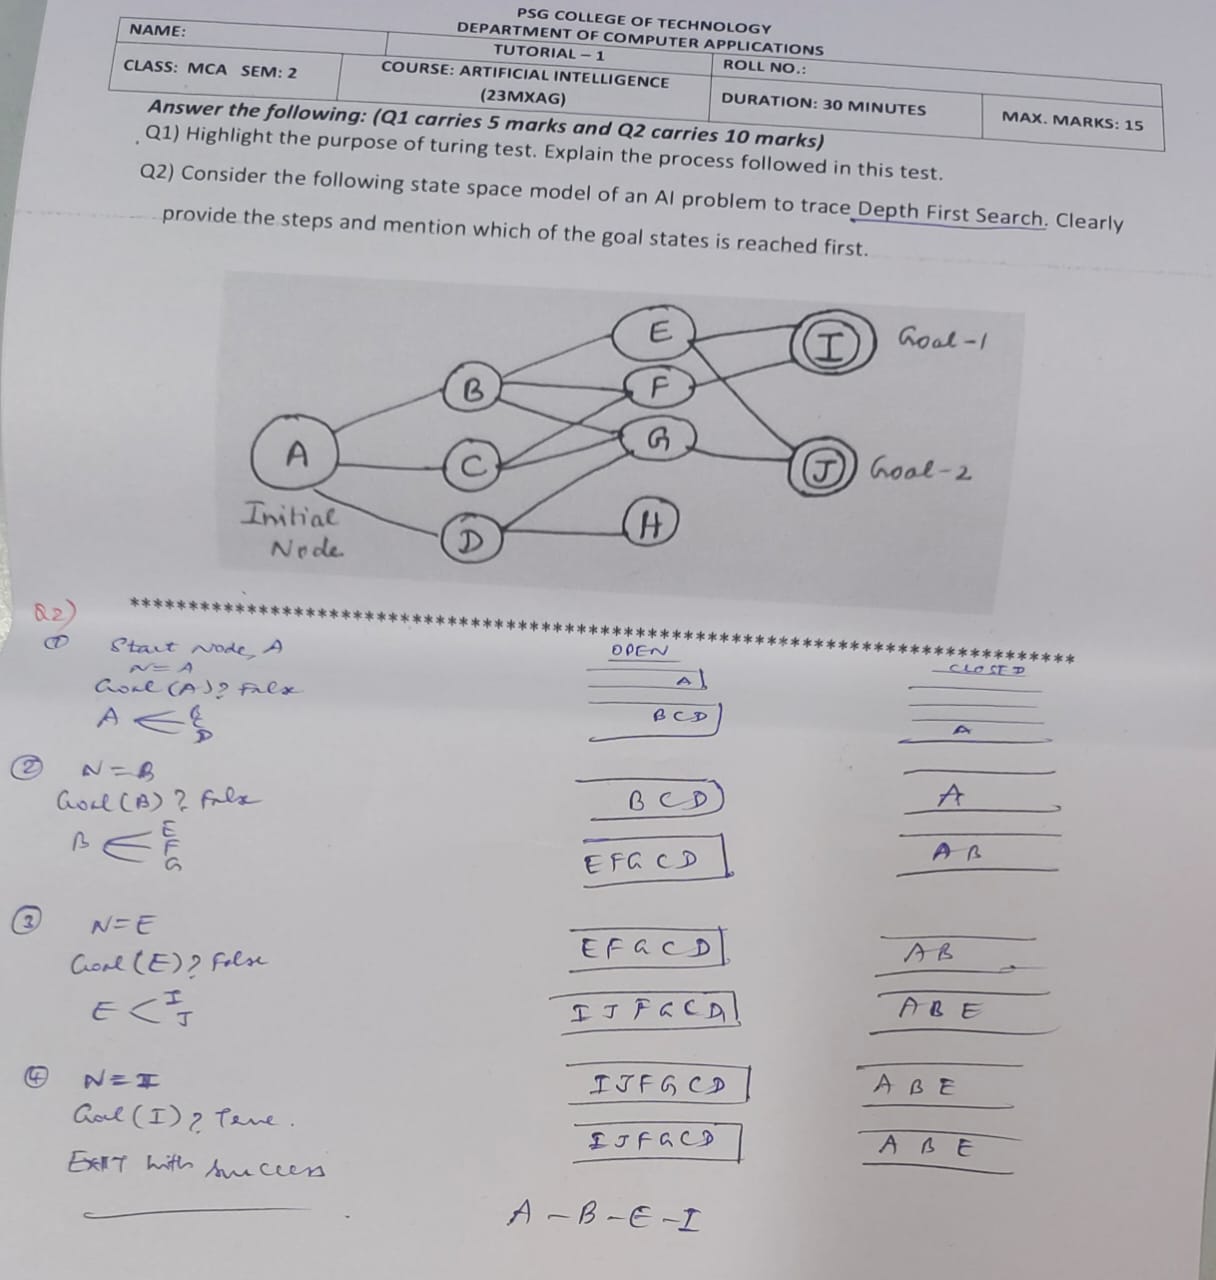 PSG COLLEGE OF TECHNOLOGY
DEPARTMENT OF COMPUTER APPLICATIONS
NAME:
TUTORIAL – 1
ROLL NO.:
CLASS: MCA SEM: 2
COURSE: ARTIFICIAL INTELLIGENCE
(23MXAG)
DURATION: 30 MINUTES
MAX. MARKS: 15
Answer the following: (Q1 carries 5 marks and Q2 carries 10 marks)
Q1) Highlight the purpose of turing test. Explain the process followed in this test.
Q2) Consider the following state space model of an AI problem to trace Depth First Search. Clearly
provide the steps and mention which of the goal states is reached first.
E
I
Goal-1
B
F
A
G
C
J
Goal-2
Initial
Node
D
H
Q2)
*********************************************************************************
① Start Node, A
OPEN
CLOSED
N = A
A
Goal (A)? False
BCD
A
A
B
C
D
② N = B
BCD
A
Goal (B)? False
B
E
F
G
EFGCD
AB
③ N = E
EFGCD
AB
Goal (E)? False
E < I
J
IJFGCD
ABE
④ N = I
IJFGCD
ABE
Goal (I)? True.
IJFGCD
ABE
EXIT with success
A – B – E – I